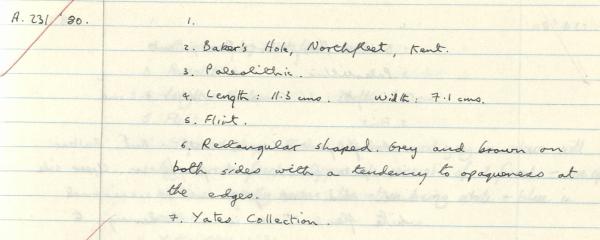 A. 231 '80. 1.
2. Baker's Hole, Northfleet, Kent.
3. Paleolithic.
4. Length: 11.3 cms. Width: 7.1 cms.
5. Flint.
6. Rectangular shaped. Grey and brown on
both sides with a tendency to opaqueness at
the edges.
7. Yates Collection.